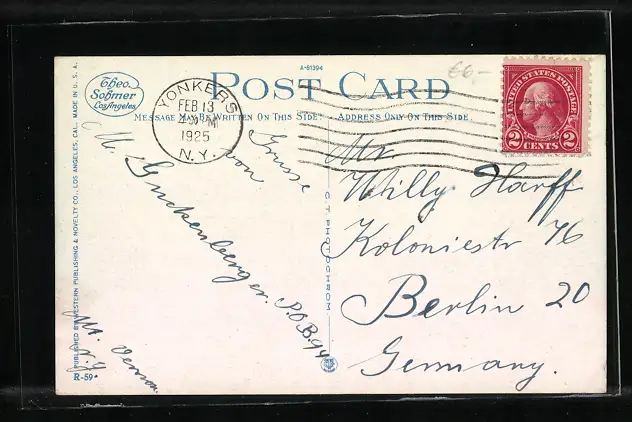 A-81394
€6-
POST CARD
MESSAGE MAY BE WRITTEN ON THIS SIDE
ADDRESS ONLY ON THIS SIDE
Theo.
Sohmer
Los Angeles
YONKERS
FEB 13
1925
N.Y.
UNITED STATES POSTAGE
2 CENTS 2
Grüsse
von
M. Guckenberger
P.O.B. 94
Mt. Vernon
N.Y
Mr.
Willy Harff
Koloniestr 76
Berlin 20
Germany.
C. T. PHOTOCHROM
PUBLISHED BY WESTERN PUBLISHING & NOVELTY CO., LOS ANGELES, CAL. MADE IN U. S. A.
R-59